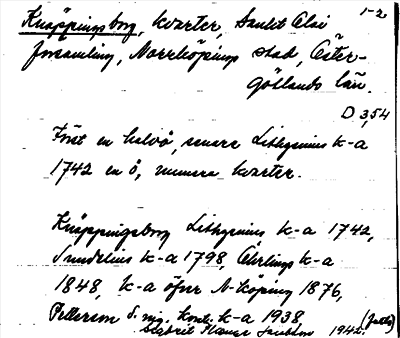 Knäppingsborg, kvarter, Sankt Olai 1-2
församling, Norrköpings stad, Öster-
götlands län.
D 3,54
Först en halvö, senare Lithzenius k-a
1742 en ö, numera kvarter.
Knäppingsborg Lithzenius k-a 1742,
Sundelius k-a 1798, Åkerlings k-a
1848, k-a öfver N-köping 1876,
Petterson S. reg. komb. k-a 1938
1942.